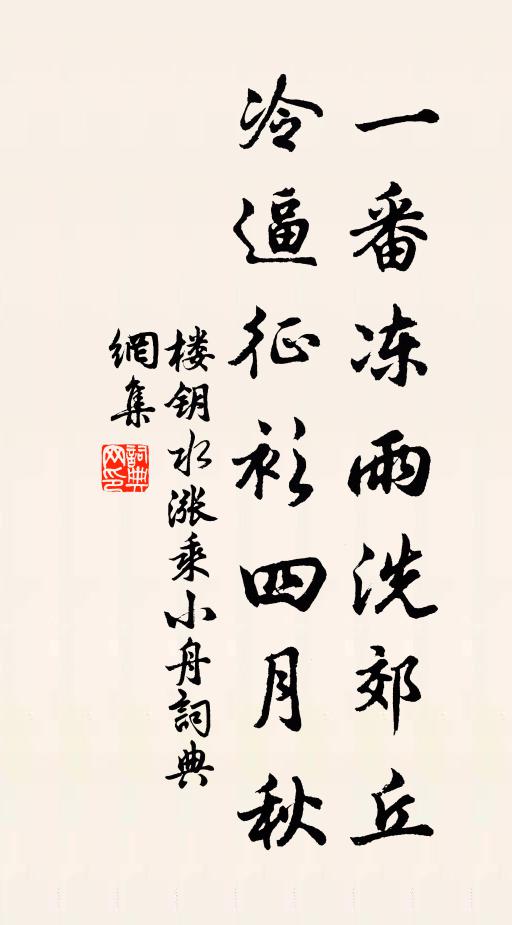 一番冻雨洗郊丘
冷逼征衫四月秋
楼钥水漲乘小舟詞典
網集
詞典
网印